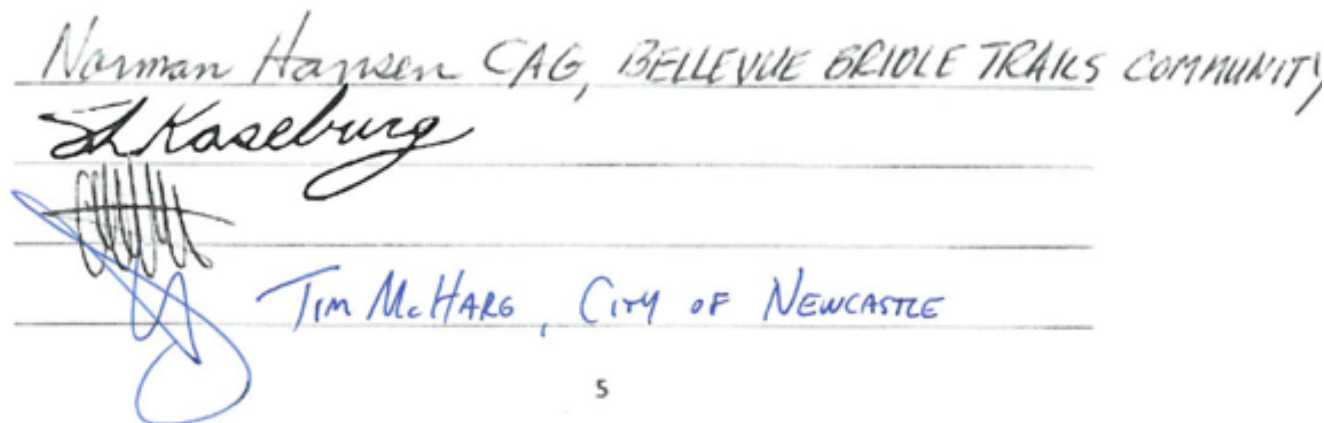 Norman Hansen CAG, BELLEVUE BRIDLE TRAILS COMMUNITY
Kaseburg
TIM McHARG, CITY OF NEWCASTLE
5